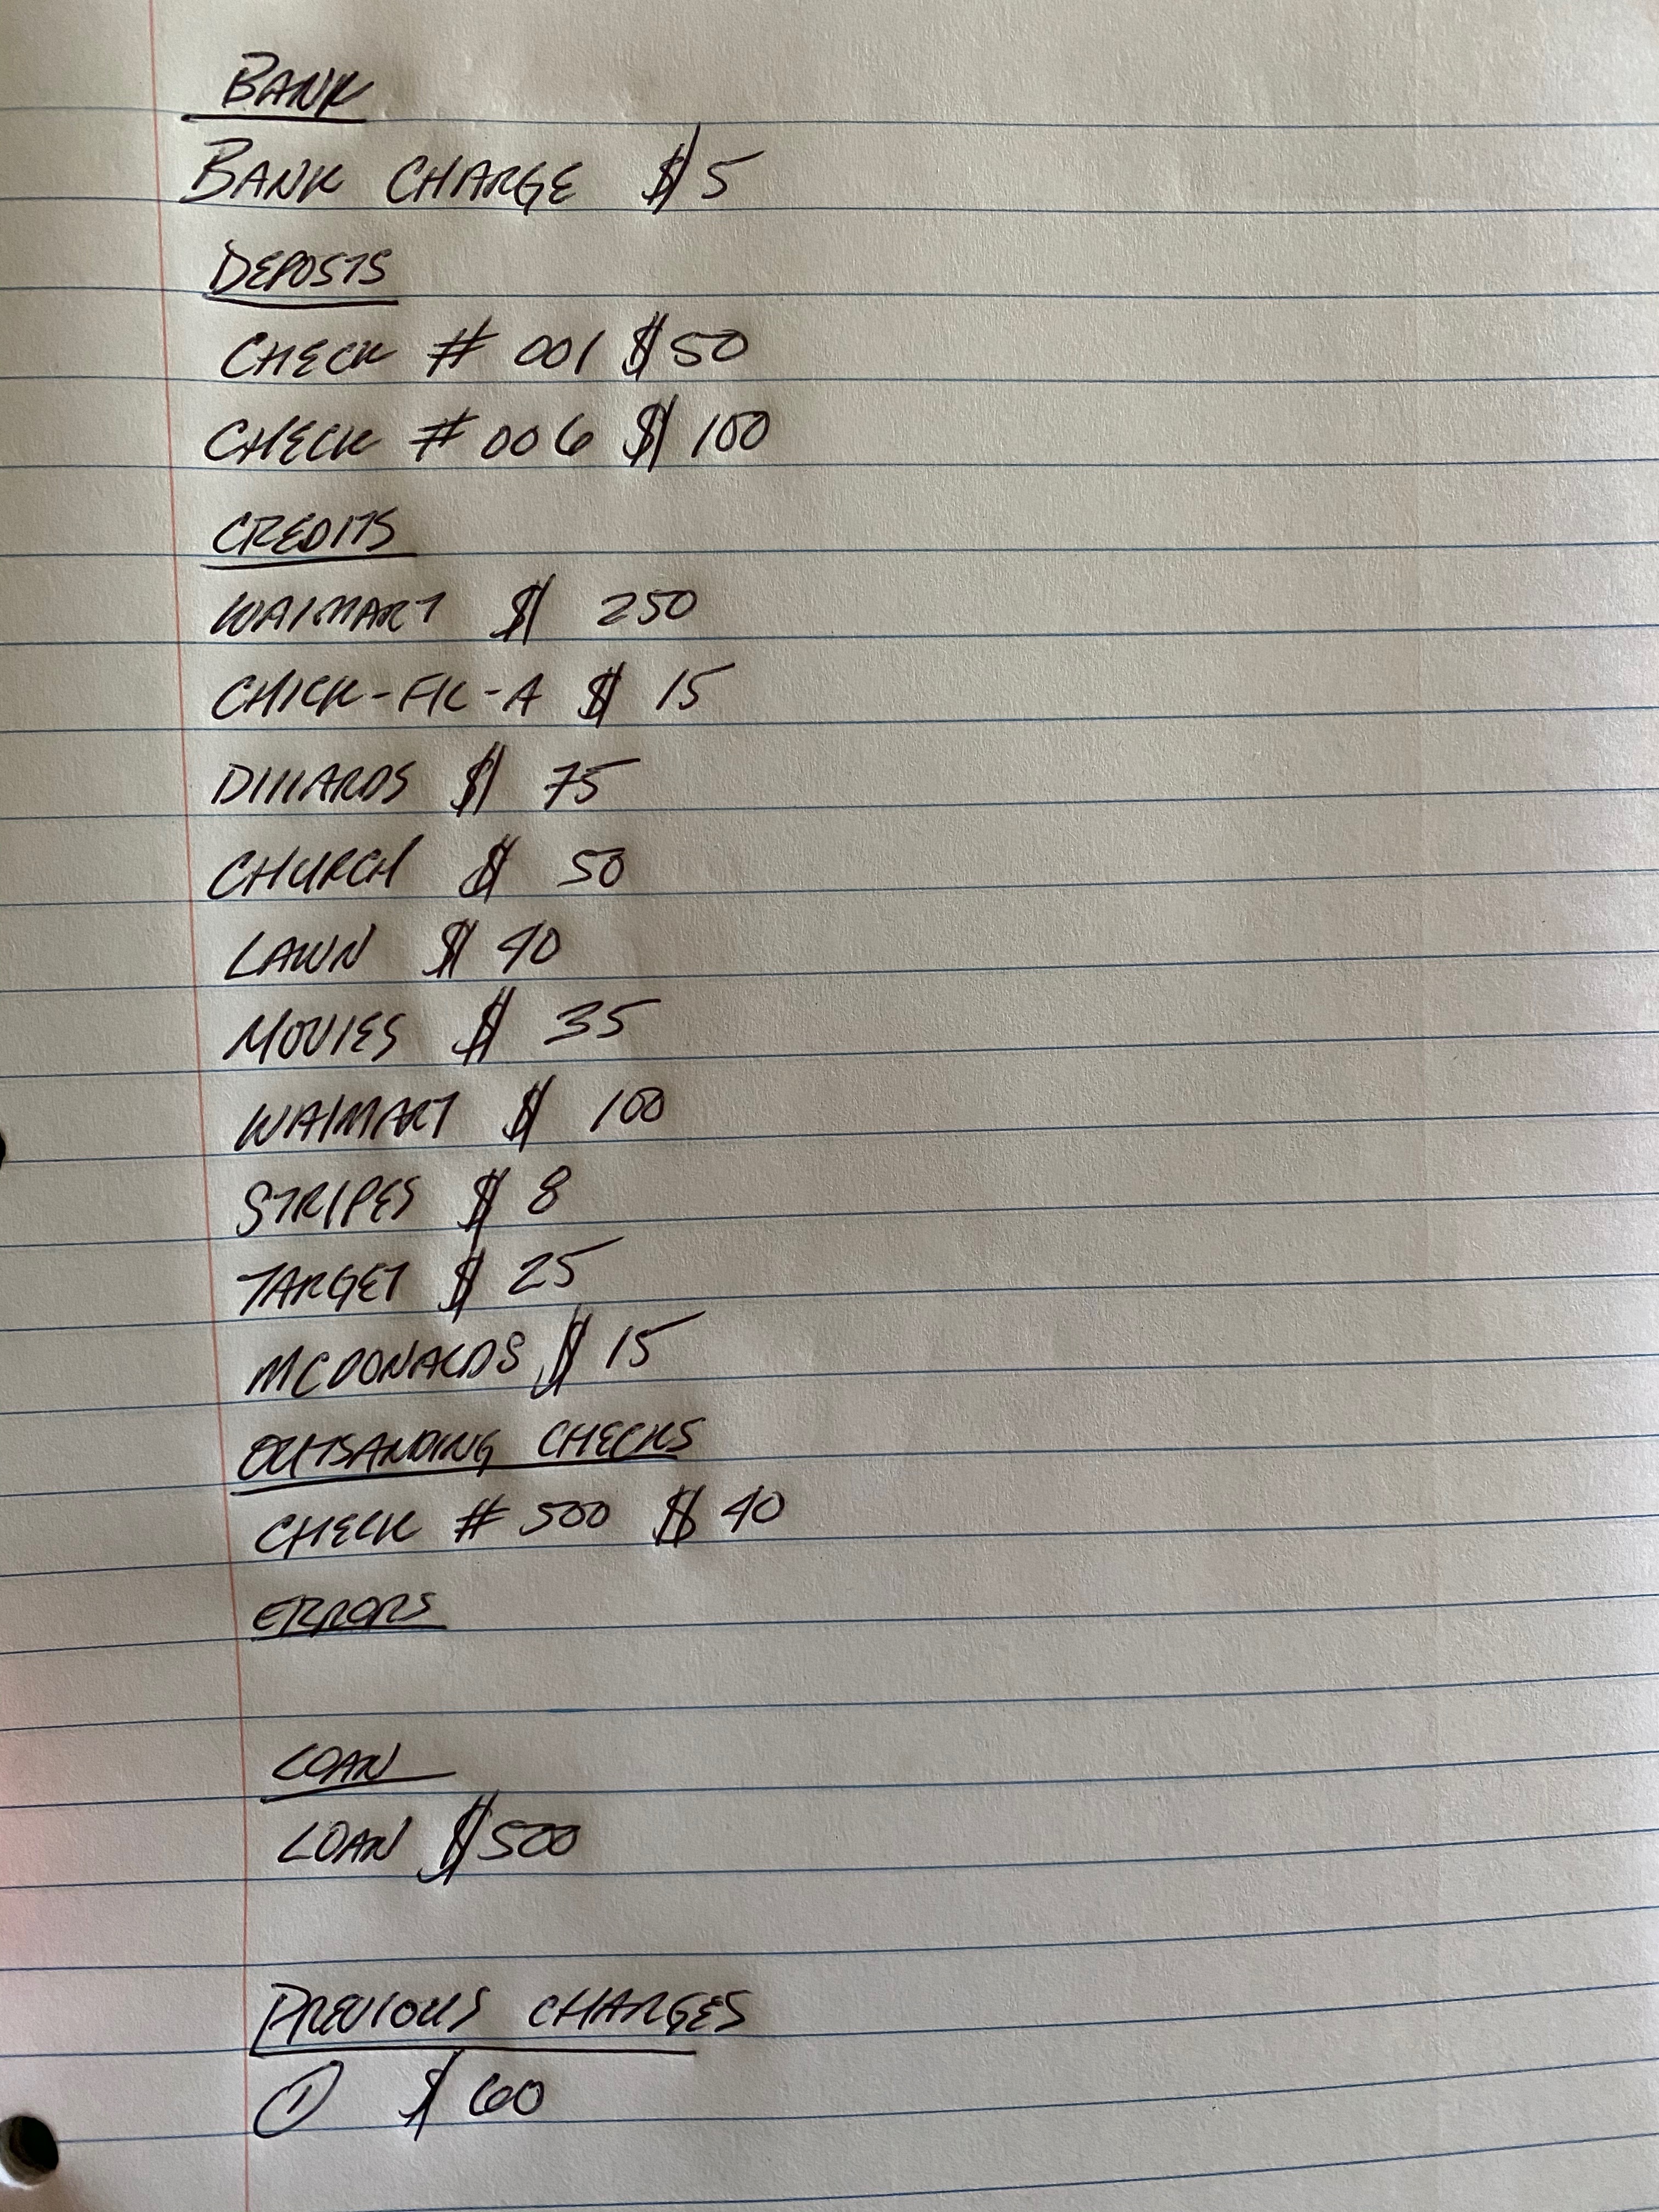 BANK
BANK CHARGE $5
DEPOSTS
CHECK # 001 $50
CHECK #006 $100
CREDITS
WALMART $ 250
CHICK-FIL-A $ 15
DILLARDS $ 75
CHURCH $ 50
LAWN $ 40
MOVIES $ 35
WALMART $ 100
STRIPES $ 8
TARGET $ 25
MCDONALDS $ 15
OUTSANDING CHECKS
CHECK # 500 $ 40
ERRORS
LOAN
LOAN $500
PREVIOUS CHARGES
① $60